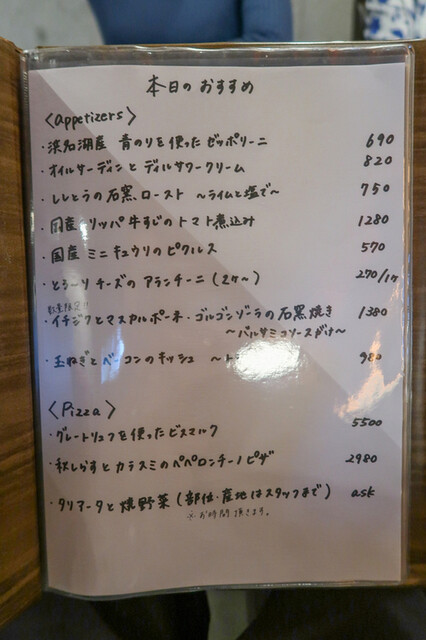 本日のおすすめ
<appetizers>
・浜名湖産 青のりを使ったゼッポリーニ 690
・オイルサーディンとディルサワークリーム 820
・ししとうの石窯ロースト 〜ライムと塩で〜 750
・国産 リッパ牛すじのトマト煮込み 1280
・国産 ミニキュウリのピクルス 570
・とろ〜りチーズのアランチーニ(2ケ〜) 270/1ケ
数量限定!!
・イチジクとマスカルポーネ・ゴルゴンゾーラの石窯焼き 1380
〜バルサミコソースがけ〜
・玉ねぎとベーコンのキッシュ 〜ト 980
<Pizza>
・グレートリュフを使ったビスマルク 5500
・秋しらすとカラスミのペペロンチーノピザ 2980
・タリアータと焼野菜(部位・産地はスタッフまで) ask
※お時間頂きます。